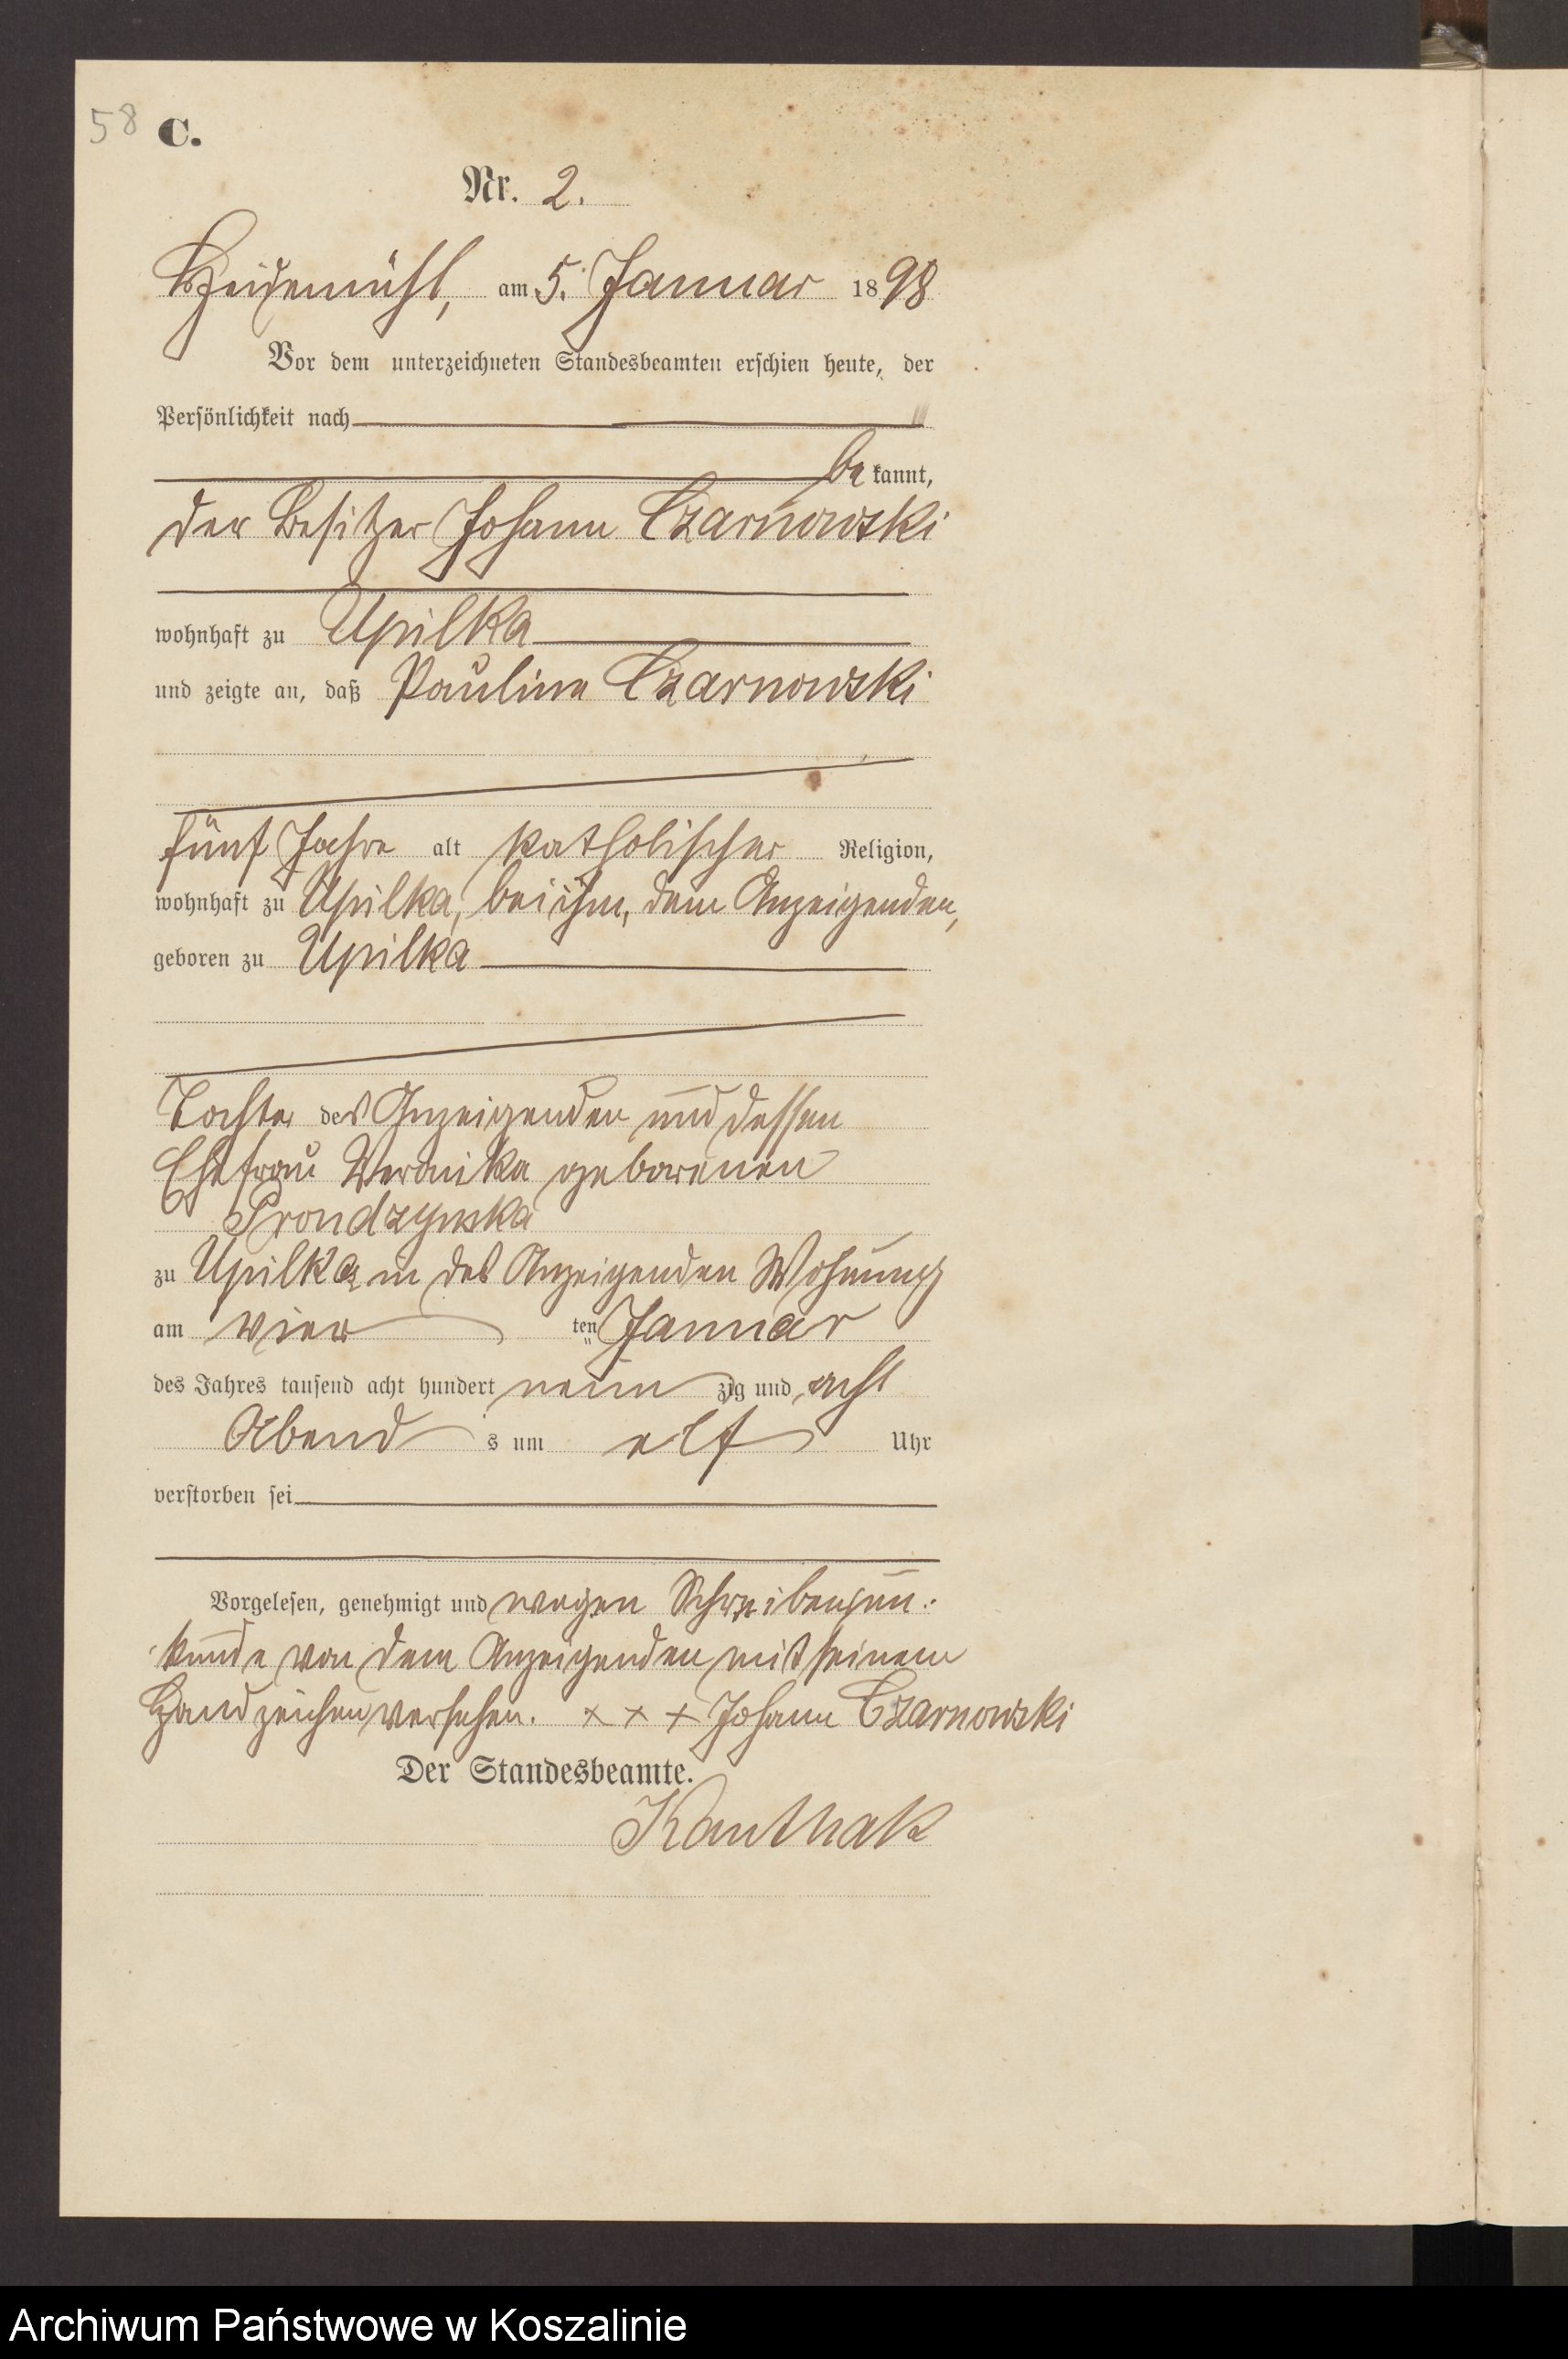 58 C.
Nr. 2.
Heidemühl, am 5. Januar 1898
Vor dem unterzeichneten Standesbeamten erschien heute, der
Persönlichkeit nach
be kannt,
der Besitzer Johann Czarnowski
wohnhaft zu Upilka
und zeigte an, daß Pauline Czarnowski
fünf Jahre alt katholischer Religion,
wohnhaft zu Upilka, bei ihm, dem Anzeigenden,
geboren zu Upilka
Tochter des Anzeigenden und dessen
Ehefrau Veronika geborenen
Prondzynska
zu Upilka in des Anzeigenden Wohnung
am vier ten Januar
des Jahres tausend acht hundert neun zig und acht
Abend s um elf Uhr
verstorben sei
Vorgelesen, genehmigt und wegen Schreibensun-
kunde von dem Anzeigenden mit seinem
Handzeichen versehen. x x x Johann Czarnowski
Der Standesbeamte.
Kanthak
Archiwum Państwowe w Koszalinie